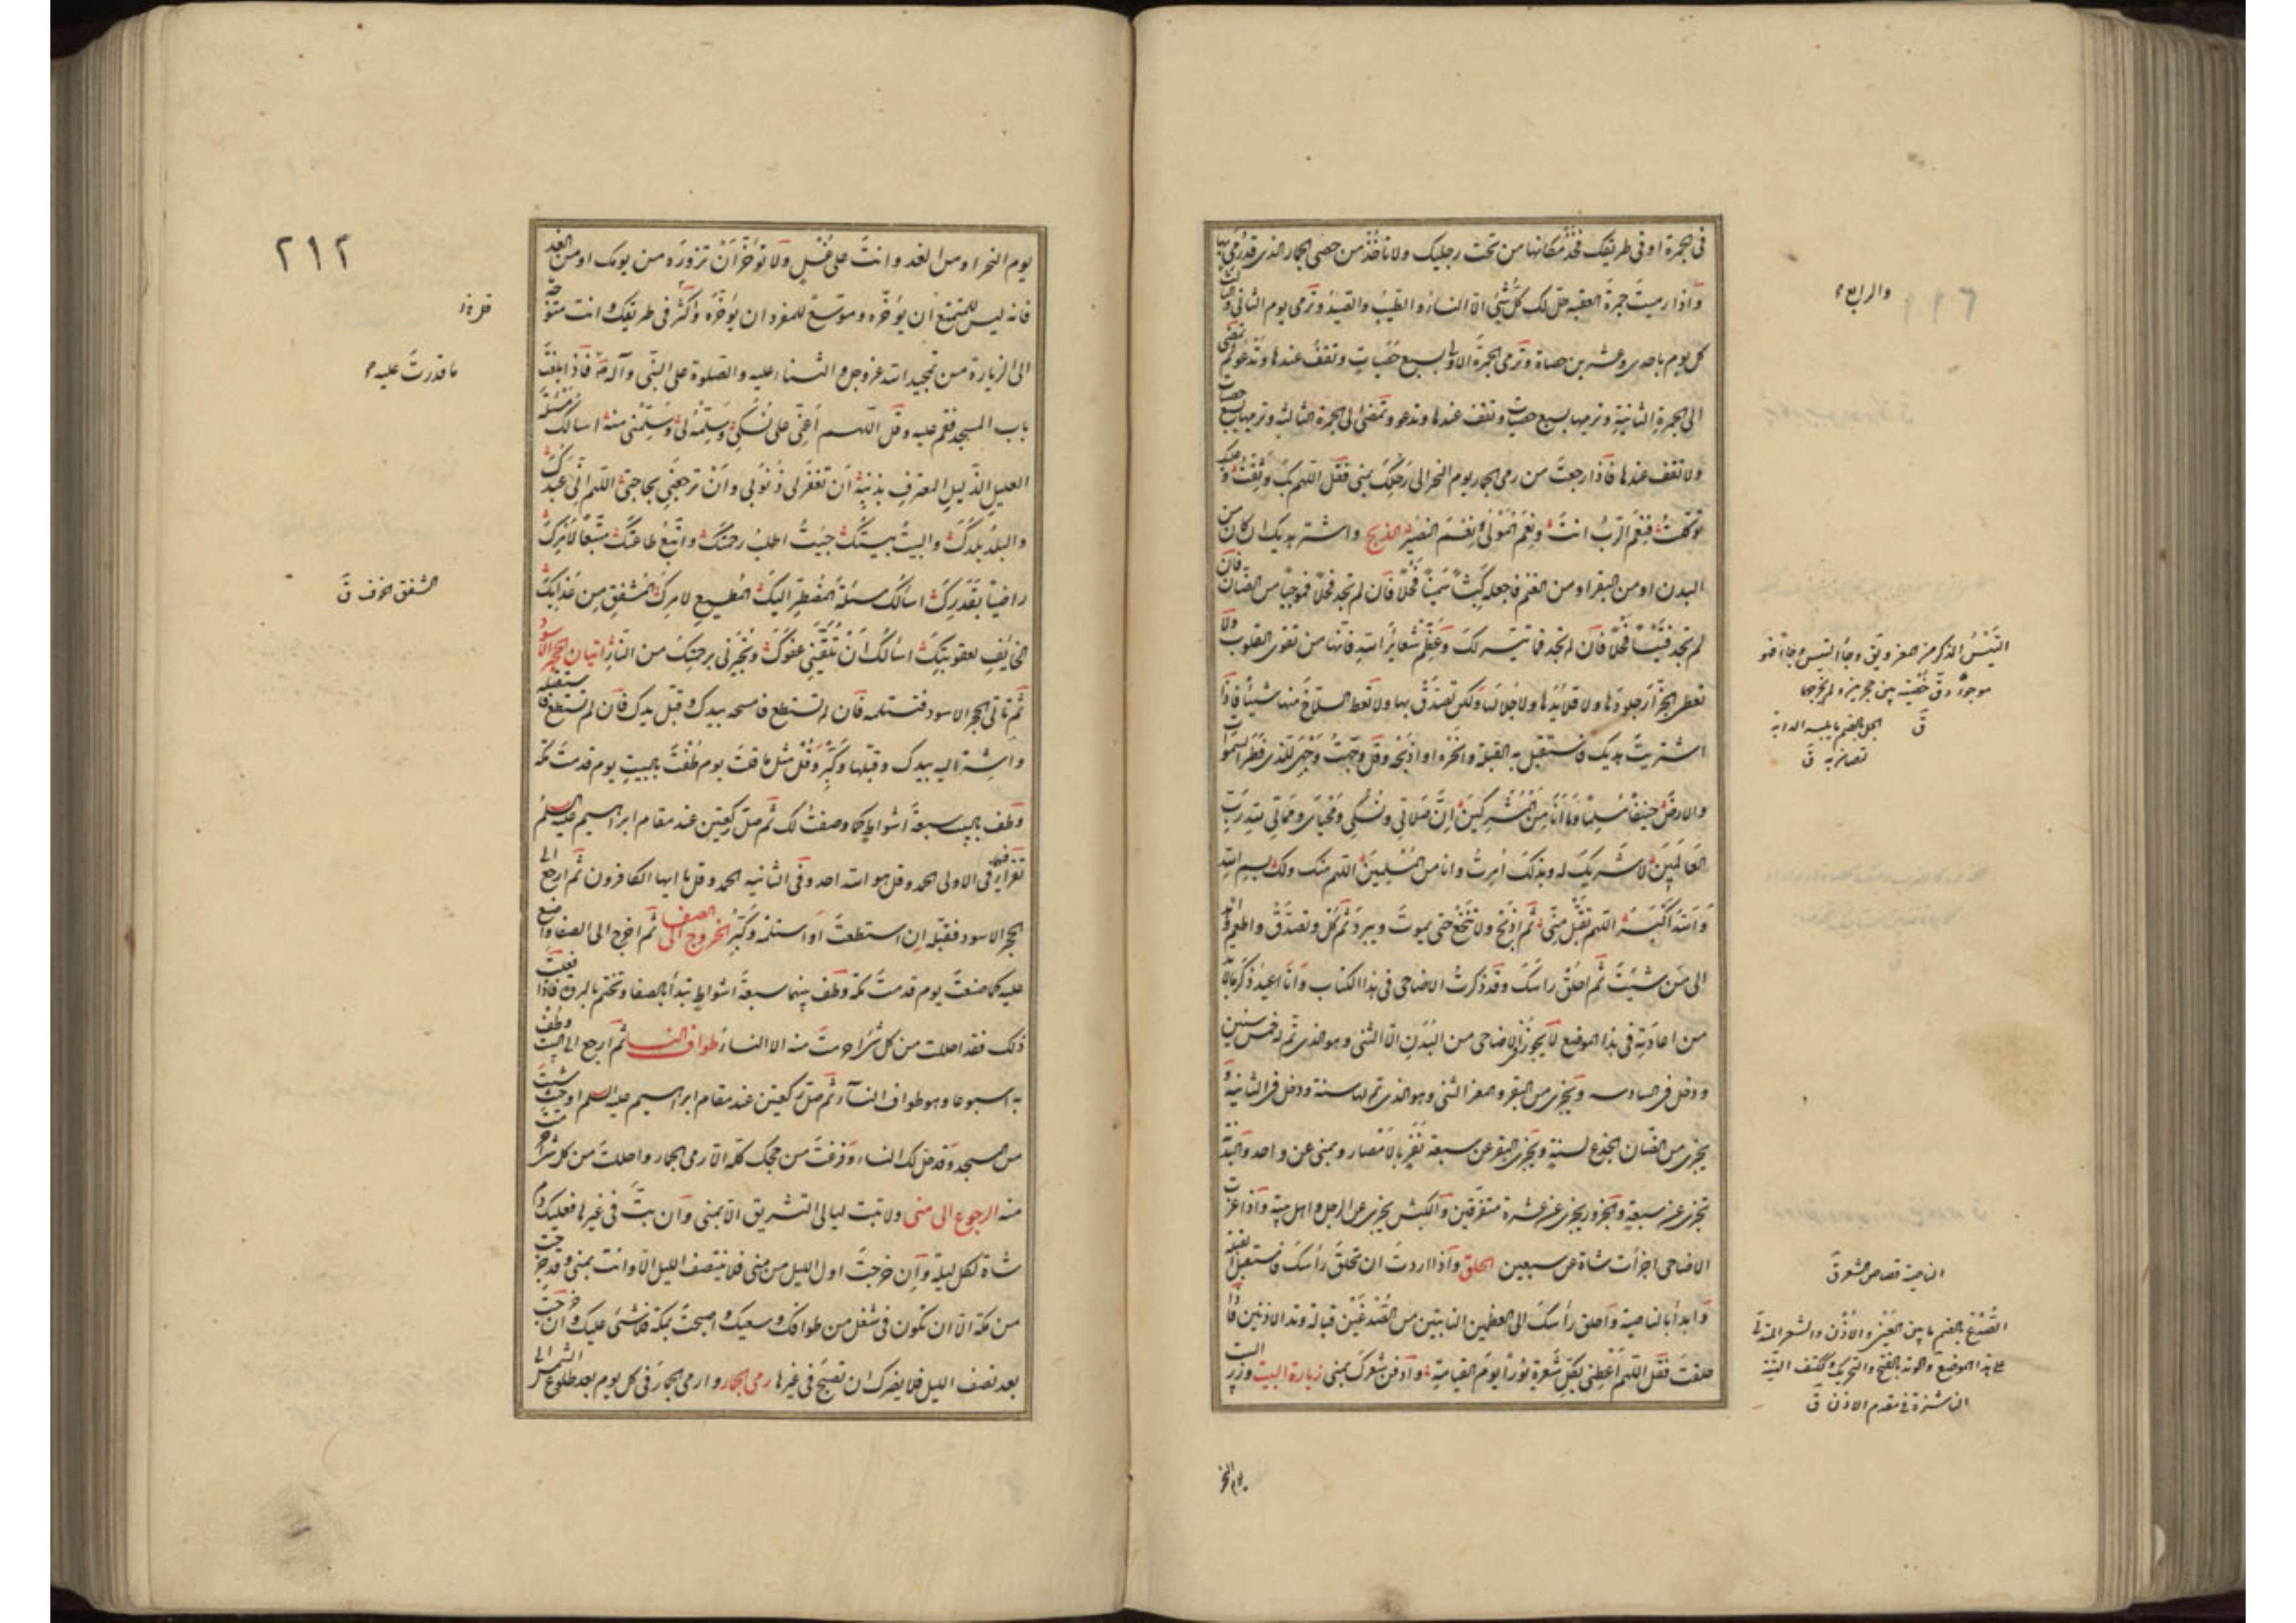 فى الجمرة او فى طريقك فخذ مكانها من تحت رجليك ولا تأخذ من حصى الجمار الذى قد رمى بها
واذا رميت جمرة العقبة حل لك كل شئ الا النساء والطيب والصيد وترمى يوم الثانى والثالث
كل يوم باحدى وعشرين حصاة وترمى الجمرة الاولى بسبع حصيات وتقف عندها وتدعو ثم تمضى
الى الجمرة الثانية وترميها بسبع حصيات وتقف عندها وتدعو وتمضى الى الجمرة الثالثة وترميها بسبع حصيات
ولا تقف عندها فاذا رجعت من رمى الجمار يوم النحر الى رحلك بمنى فقل اللهم بك وثقت وعليك
توكلت فنعم الرب انت ونعم المولى ونعم النصير الذبح واشتر هديك ان كان من
البدن او من البقر او من الغنم فاجعله كبشا سمينا فحلا فان لم تجد فحلا فموجيا من الضان فان
لم تجد فتيسا فحلا فان لم تجد فما تيسر لك وعظم شعاير الله فانها من تقوى القلوب ولا
تعط الجزار جلودها ولا قلايدها ولا جلالها ولكن تصدق بها ولا تعط السلاخ منها شيئا فاذا
اشتريت هديك فاستقبل به القبلة وانحره او اذبحه وقل وجهت وجهى للذى فطر السموات
والارض حنيفا مسلما وما انا من المشركين ان صلاتى ونسكى ومحياى ومماتى لله رب
العالمين لا شريك له وبذلك امرت وانا من المسلمين اللهم منك ولك بسم الله
والله اكبر اللهم تقبل منى ثم اذبح ولا تنخع حتى يموت ويبرد ثم كل وتصدق واطعم واهد
الى من شئت ثم احلق راسك وقد ذكرت الاضاحى فى هذا الكتاب وانا اعيد ذكر ما لا بد
من اعادته فى هذا الموضع لا يجوز فى الاضاحى من البدن الا الثنى وهو الذى تم له خمس سنين
ودخل فى السادسه ويجزى من البقر والمعز الثنى وهو الذى تم لها سنة ودخل فى الثانية و
يجزى من الضان الجذع لسنة ويجزى البقر عن سبعة نفر بالامصار وبمنى عن واحد والبدنة
تجزى عن سبعة والجزور يجزى عن عشرة متفرقين والكبش يجزى عن الرجل واهل بيته واذا عزت
الاضاحى اجزأت شاة عن سبعين الحلق واذا اردت ان تحلق رأسك فاستقبل القبلة
وابدأ بالناصية واحلق رأسك الى العظمين النابتين من الصدغين قبالة وتد الاذنين فاذا
حلقت فقل اللهم اعطنى بكل شعرة نورا يوم القيامة وادفن شعرك بمنى زيارة البيت وزر البيت
والرابع
التيس الذكر من المعز ويق وجأ التيس وجاء فهو
موجو دق خصيته بين حجرين ولم يخرجهما
ق الجل بالضم ما يلبسه الدابه
لتصان به ق
الناصية قصاص الشعر ق
الصدغ بالضم ما بين العين والاذن والشعر المتدلى
على هذا الموضع والوتد بالفتح والتحريك وككتف الهنية
الناشزة فى مقدم الاذن ق
يوم النحر
٢١٢
يوم النحر او من الغد وانت على غسل ولا تؤخر ان تزوره من يومك او من الغد
فانه ليس للمتمتع ان يؤخره وموسع للمفرد ان يؤخره واكثر فى طريقك وانت متوجه
الى الزيارة من تمجيد الله عز وجل والثناء عليه والصلوة على النبى وآله فاذا بلغت
باب المسجد فقم عليه وقل اللهم اعنى على نسكى وسلمه لى وسلمنى منه اسالك مسئلة
العليل الذليل المعترف بذنبه ان تغفر لى ذنوبى وان ترجعنى بحاجتى اللهم انى عبدك
والبلد بلدك والبيت بيتك جئت اطلب رحمتك واتبع طاعتك متبعا لامرك
راضيا بقدرك اسالك مسئلة المضطر اليك المطيع لامرك المشفق من عذابك
الخايف لعقوبتك اسالك ان تلقينى عفوك وتجيرنى برحمتك من النار اتيان الحجر الاسود
ثم تاتى الحجر الاسود فتستلمه فان لم تستطع فامسحه بيدك وقبل يدك فان لم تستطع فاستقبله
واشر اليه بيدك وقبلها وكبر وقل مثل ما قلت يوم طفت بالبيت يوم قدمت مكة
وطف بالبيت سبعة اشواط كما وصفت لك ثم صل ركعتين عند مقام ابراهيم عليه السلم
تقرا فيهما فى الاولى الحمد وقل هو الله احد وفى الثانيه الحمد وقل يا ايها الكافرون ثم ارجع الى
الحجر الاسود فقبله ان استطعت او استلمه وكبر الخروج الى الصفا ثم اخرج الى الصفا واصنع
عليه كما صنعت يوم قدمت مكة وطف بينهما سبعة اشواط تبدأ بالصفا وتختم بالمروة فاذا فعلت
ذلك فقد احللت من كل شئ احرمت منه الا النساء طواف النساء ثم ارجع الى البيت وطف
به اسبوعا وهو طواف النساء ثم صل ركعتين عند مقام ابراهيم عليه السلم او حيث شئت
من المسجد وقد حل لك النساء وفرغت من حجك كله الا رمى الجمار واحللت من كل شئ احرمت
منه الرجوع الى منى ولا تبت ليالى التشريق الا بمنى وان بت فى غيرها فعليك دم
شاة لكل ليلة وان خرجت اول الليل من منى فلا ينتصف الليل الا وانت بمنى وقد خرجت
من مكة الا ان تكون فى شغل من طوافك وسعيك واصبحت بمكة فلا شئ عليك وان خرجت
بعد نصف الليل فلا يضرك ان تصبح فى غيرها رمى الجمار وارمى الجمار فى كل يوم بعد طلوع الشمس الى
ما قدرت عليه
الشفق الخوف ق